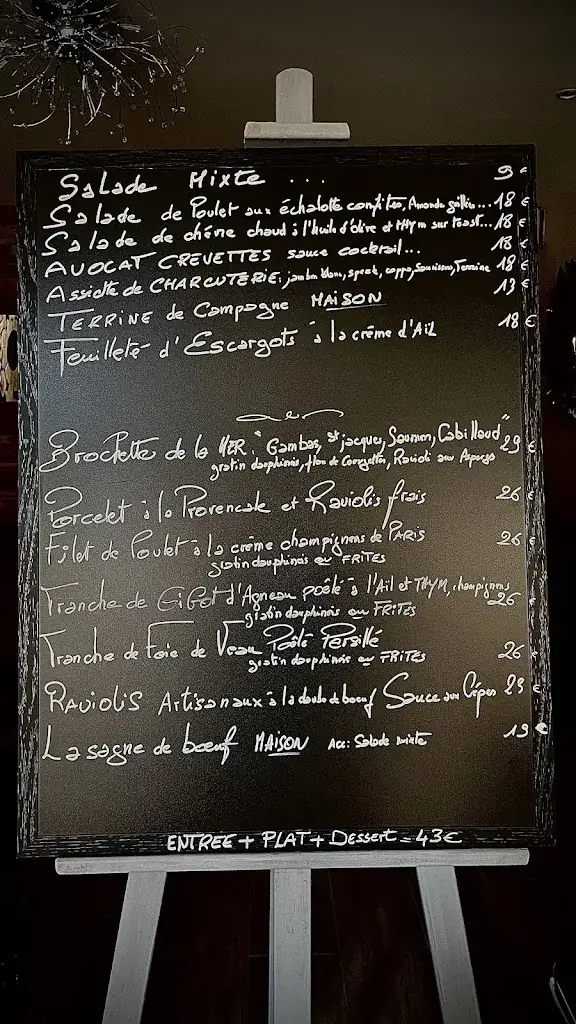 Salade Mixte ... 9 €
Salade de Poulet aux échalotte confites, Amande grillées... 18 €
Salade de chêvre chaud à l'huile d'olive et thym sur toast... 18 €
AVOCAT CREVETTES sauce cocktail... 18 €
Assiette de CHARCUTERIE: jambon blanc, speck, coppa, Saucisson, Terrine 18 €
TERRINE de Campagne MAISON 13 €
Feuilleté d'Escargots à la crême d'Ail 18 €
Brochette de la MER "Gambas, St jacques, Saumon, Cabillaud" 29 €
gratin dauphinois, flan de Courgettes, Ravioli aux Asperges
Porcelet à la Provencale et Raviolis frais 26 €
Filet de Poulet à la crême champignons de PARIS 26 €
gratin dauphinois ou FRITES
Tranche de Gigot d'Agneau poêlé à l'Ail et THYM, champignons 26
gratin dauphinois ou FRITES
Tranche de Foie de Veau Poêlé Persillé 26 €
gratin dauphinois ou FRITES
RAVIOLIS Artisanaux à la daube de boeuf Sauce aux Cêpes 23 €
Lasagne de boeuf MAISON Acc: Salade mixte 19 €
ENTREE + PLAT + Dessert = 43€